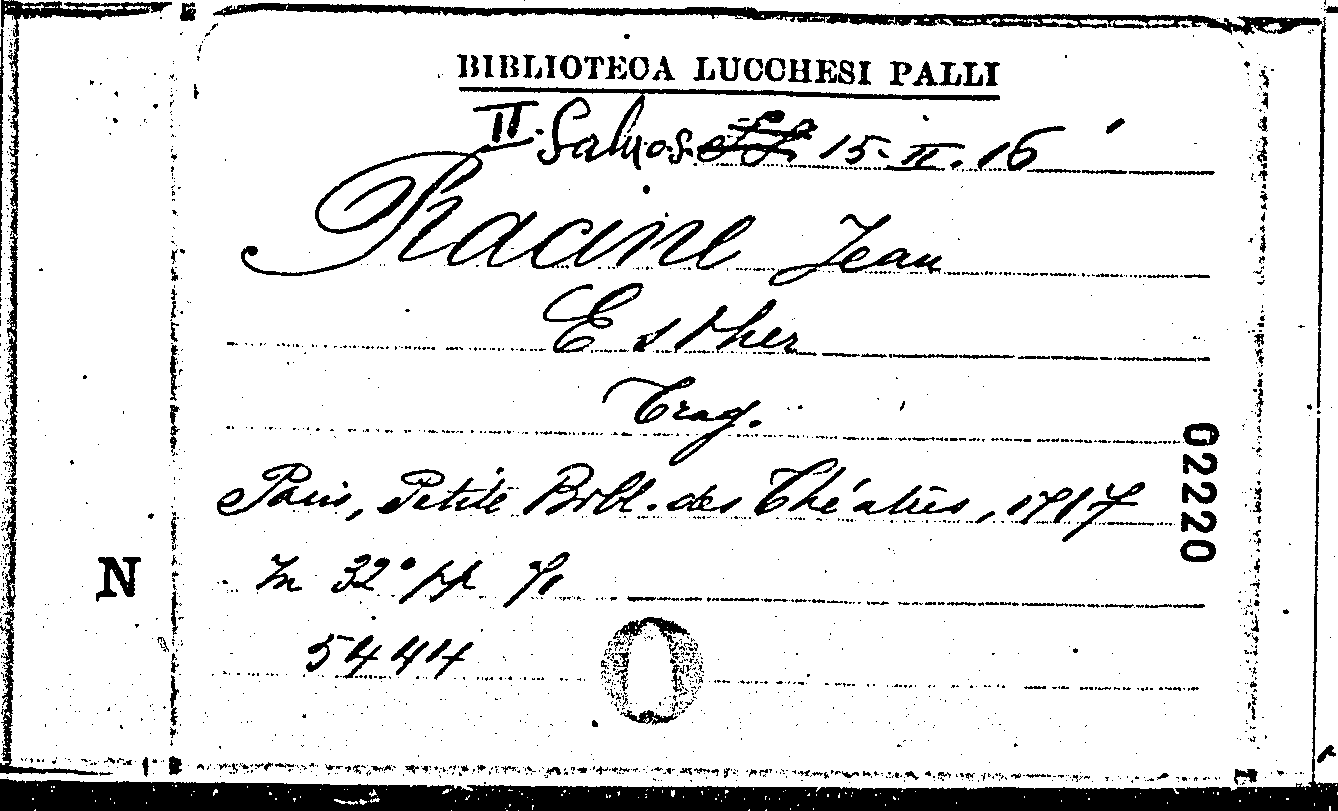 BIBLIOTECA LUCCHESI PALLI
II. Salvos. 15-II. 16
Racine Jean
Esther
Trag.
Paris, Petite Bibl. des Théatres, 1787
02220
N
In 32° pp. 71
5444